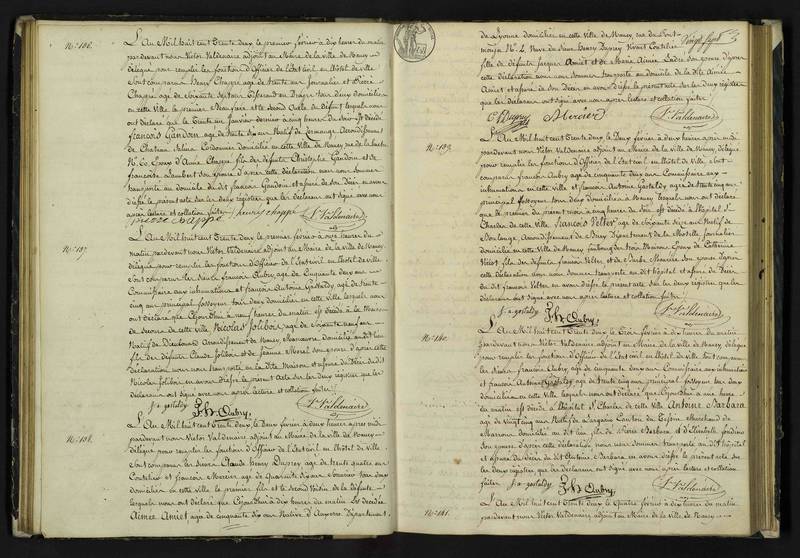 N.º 136.
L'An Mil huit cent Trente deux le premier février à dix heures du matin
pardevant nous Victor Valdenaire adjoint au Maire de la ville de Nancy
délégué pour remplir les fonctions d'Officier de l'Etat civil en l'hôtel de ville
sont comparus Henry Chappé agé de trente six ans
Chappé agé de soixante dix ans tous deux domiciliés
en cette ville le premier et le second Oncle du défunt lesquels nous
ont déclaré que le Trente un Janvier dernier à cinq heures du soir est décédé
François Gandoin agé de trente six ans Natif de Arrondissement
de Château Salins Cordonnier domicilié en cette ville de Nancy rue
N. 60 Epoux d'Annie Chappé fils des défunts Christophe Gandoin et de
françoise Lambert son épouse d'après cette déclaration nous nous sommes
transportés au domicile du dit françois Gandoin et assuré de son Décès en avons
dressé le présent acte sur les deux registres que les déclarans ont signé avec nous
après lecture et collation faites
henry chappé
pierre chappé
Vr Valdenaire
N.º 137.
L'An Mil huit cent Trente deux le premier février à heures du
matin pardevant nous Victor Valdenaire adjoint au Maire de la ville de Nancy
délégué pour remplir les fonctions d'Officier de l'Etat civil en l'hôtel de ville
sont comparus les Sieurs françois Aubry agé de Cinquante deux ans
Commissaire aux inhumations et françois Antoine Gastaldy agé de trente
cinq ans principal fossoyeur tous deux domiciliés en cette ville lesquels nous
ont déclaré que Cejourd'hui à neuf heures du matin est décédé à la Maison
de Secours de cette ville Nicolas Jolibois agé de soixante neuf ans
Natif de Arrondissement de Nancy Manœuvre domicilié audit lieu
fils des défunts Claude Jolibois et de Jeanne Morel son épouse d'après cette
Déclaration nous nous transportés en la dite Maison et assuré du Décès du dit
Nicolas Jolibois en avons dressé le présent Acte sur les deux registres que les
déclarans ont signé avec nous après lecture et collation faites
f. a. gastaldy
F. Aubry
Vr Valdenaire
N.º 138.
L'An Mil huit cent Trente deux le Deux février à deux heures après midi
pardevant nous Victor Valdenaire adjoint au Maire de la ville de Nancy
délégué pour remplir les fonctions d'Officier de l'Etat civil en l'hôtel de Ville
sont comparus les sieurs Claude Henry Duprey agé de trente quatre ans
Coutelier et françois Mercier agé de Quarante dix ans tous deux
domiciliés en cette ville le premier fils et le second Voisin de la défunte
lesquels nous ont déclaré que Cejourd'hui à dix heures du matin est décédée
Aimée Amiot agée de cinquante dix ans Native d'Auxonne Département
Vingt Sept
domiciliée en cette Ville de Nancy, rue du Pont
N.º 2, Veuve de Jean Henry Duprey Vivant Coutelier
fille de défunts Jacques Amiot et de Marie Aimée son épouse d'après
cette déclaration nous nous sommes transportés au domicile de la dite Aimée
Amiot et assuré de son Décès en avons dressé le présent acte sur les deux registres
que les déclarans ont signé avec nous après lecture et collation faites
C. Duprey
Mercier
Vr Valdenaire
N.º 139.
L'An Mil huit cent Trente deux, le Deux février à deux heures après midi
pardevant nous Victor Valdenaire adjoint au Maire de la ville de Nancy, délégué
pour remplir les fonctions d'Officier de l'Etat civil en l'hôtel de Ville, sont
comparus françois Aubry agé de cinquante deux ans Commissaire aux
inhumations en cette ville et françois Antoine Gastaldy agé de trente cinq ans
principal fossoyeur tous deux domiciliés à Nancy Lesquels nous ont déclaré
que le premier du présent mois à cinq heures du Soir est décédé à l'hôpital St
Charles de cette ville François Velter agé de soixante dix ans Natif de
Boulange, Arrondissement de Briey Département de la Moselle
domicilié en cette Ville de Nancy faubourg des trois Maisons Epoux de Catherine
fils des défunts françois Velter, et de son épouse d'après
cette déclaration nous nous sommes transportés au dit hôpital et assuré du Décès
du dit françois Velter, en avons dressé le présent acte sur les deux registres que les
déclarans ont signé avec nous après lecture et collation faites
f. a. gastaldy
F. Aubry
Vr Valdenaire
N.º 140.
L'An Mil huit cent Trente deux le Trois février à dix heures du matin
pardevant nous Victor Valdenaire adjoint au Maire de la ville de Nancy, délégué
pour remplir les fonctions d'Officier de l'Etat civil en l'hôtel de Ville sont comparus
les Sieurs françois Aubry, agé de cinquante deux ans Commissaire aux inhumations
et françois Antoine Gastaldy agé de trente cinq ans principal fossoyeur tous deux
domiciliés en cette Ville lesquels nous ont déclaré que Cejourd'hui à une heure
du matin est décédé à l'hôpital St Charles de cette ville Antoine Barbara
agé de Vingt cinq ans Natif de Canton du Tessin, Marchand de
Marrons domicilié au dit lieu, fils de Pierre Barbara et d'Elisabeth
son épouse d'après cette déclaration nous nous sommes transportés au dit hôpital
et assuré du décès du dit Antoine Barbara en avons dressé le présent acte sur
les deux registres que les déclarans ont signé avec nous après lecture et collation
faites
f. a. gastaldy
F. Aubry
Vr Valdenaire
N.º 141.
L'An Mil huit cent Trente deux le Quatre février à dix heures du matin
pardevant nous Victor Valdenaire adjoint au Maire de la ville de Nancy